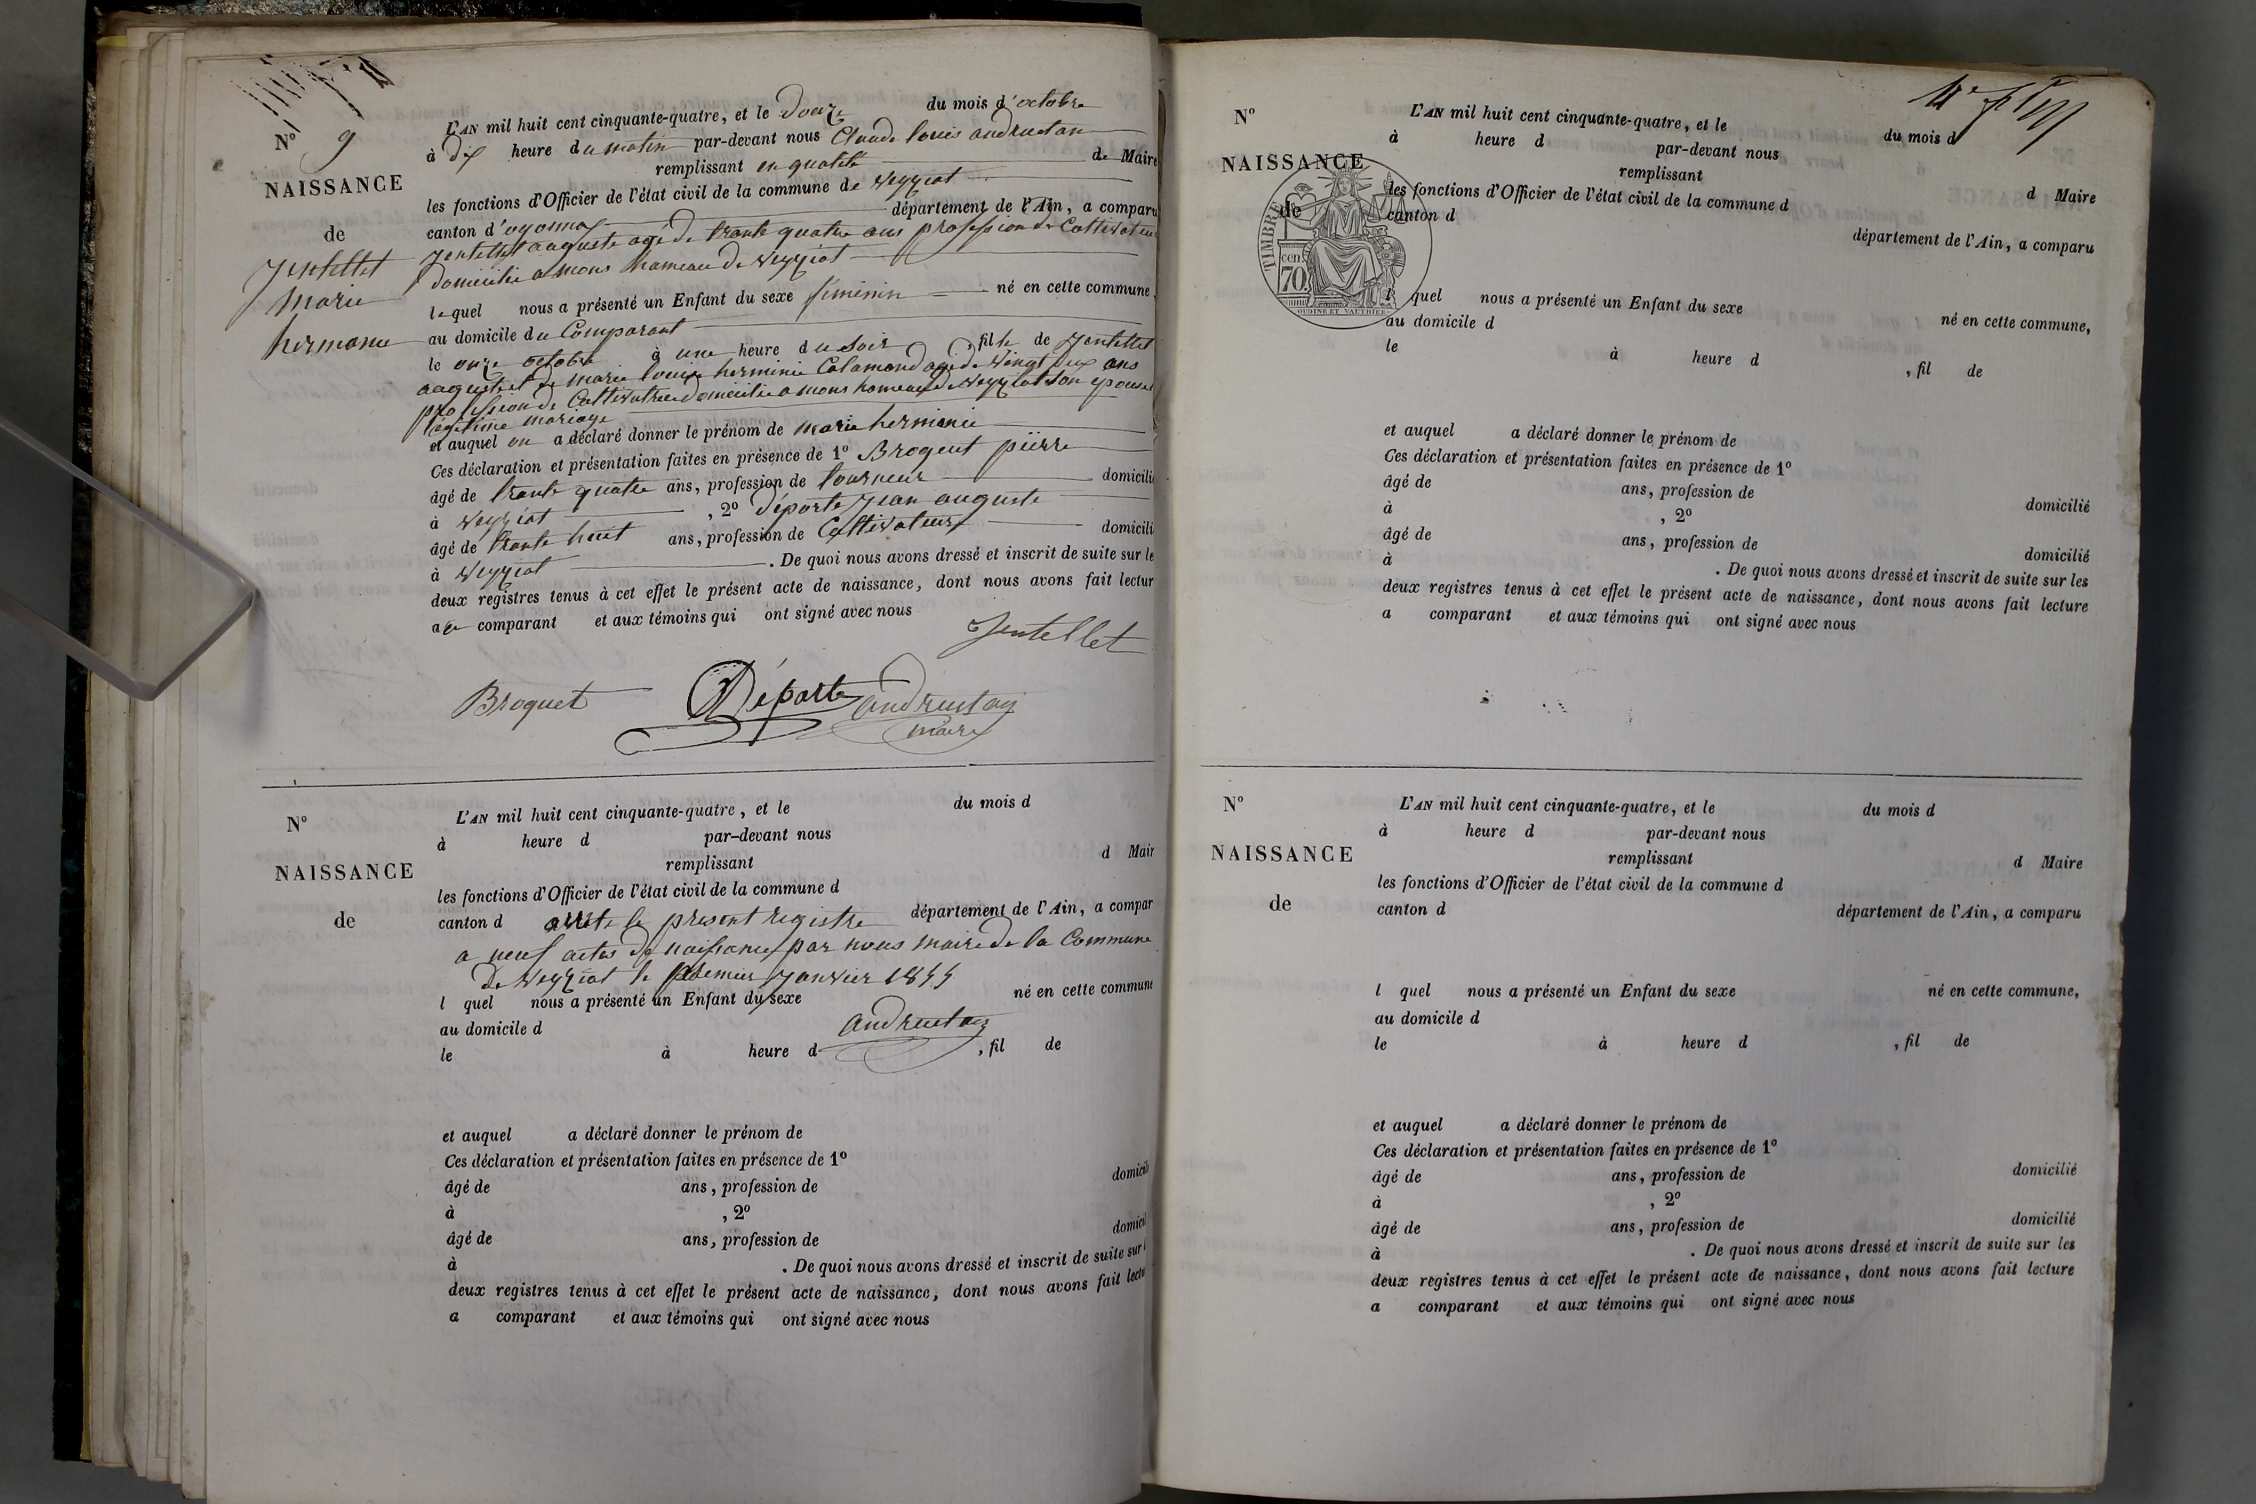 N° 9
NAISSANCE
de
Jentellet
Marie
hermanie
L'AN mil huit cent cinquante-quatre, et le Douze du mois d'octobre
à Dix heure du matin par-devant nous Claude louis andruetan
remplissant en qualité de Maire
les fonctions d'Officier de l'état civil de la commune de Veyziat
canton d'oyonnax département de l'Ain, a comparu
Jentellet auguste agé de trante quatre ans profession de Cultivateur
domicilié a mons hameau de Veyziat
lequel nous a présenté un Enfant du sexe féminin né en cette commune,
au domicile du Comparant
le onze octobre à une heure du soir, fille de Jentellet
auguste et de marie louise herminie Calamand agé de Vingt deux ans
profession de Cultivatrice domicilié a mons hameau de Veyziat son epouse
légitime mariage
et auquel on a déclaré donner le prénom de marie hermanie
Ces déclaration et présentation faites en présence de 1° Broquet pierre
âgé de trante quatre ans, profession de tourneur domicilié
à Veyziat, 2° Déporte Jean auguste
âgé de trante huit ans, profession de Cultivateur domicili
à Veyziat. De quoi nous avons dressé et inscrit de suite sur le
deux registres tenus à cet effet le présent acte de naissance, dont nous avons fait lectur
au comparant et aux témoins qui ont signé avec nous
Jentellet
Broquet Déporte andruetan
maire
N°
NAISSANCE
de
L'AN mil huit cent cinquante-quatre, et le du mois d
à heure d par-devant nous
remplissant d Mair
les fonctions d'Officier de l'état civil de la commune d
canton d arrete le present registre département de l'Ain, a compar
a neuf actes de naissance par nous maire de la Commune
de Veyziat le premier Janvier 1855
l quel nous a présenté un Enfant du sexe né en cette commune
andruetan
au domicile d
le à heure d, fil de
et auquel a déclaré donner le prénom de
Ces déclaration et présentation faites en présence de 1°
âgé de ans, profession de domicilié
à, 2°
âgé de ans, profession de domicil
à. De quoi nous avons dressé et inscrit de suite sur l
deux registres tenus à cet effet le présent acte de naissance, dont nous avons fait lectu
a comparant et aux témoins qui ont signé avec nous
N°
NAISSANCE
de
TIMBRE
cen
70
OUDINE ET VAUTHIER
L'AN mil huit cent cinquante-quatre, et le du mois d
à heure d par-devant nous
remplissant d Maire
les fonctions d'Officier de l'état civil de la commune d
canton d département de l'Ain, a comparu
l quel nous a présenté un Enfant du sexe né en cette commune,
au domicile d
le à heure d, fil de
et auquel a déclaré donner le prénom de
Ces déclaration et présentation faites en présence de 1°
âgé de ans, profession de domicilié
à, 2°
âgé de ans, profession de domicilié
à. De quoi nous avons dressé et inscrit de suite sur les
deux registres tenus à cet effet le présent acte de naissance, dont nous avons fait lecture
a comparant et aux témoins qui ont signé avec nous
N°
NAISSANCE
de
L'AN mil huit cent cinquante-quatre, et le du mois d
à heure d par-devant nous
remplissant d Maire
les fonctions d'Officier de l'état civil de la commune d
canton d département de l'Ain, a comparu
l quel nous a présenté un Enfant du sexe né en cette commune,
au domicile d
le à heure d, fil de
et auquel a déclaré donner le prénom de
Ces déclaration et présentation faites en présence de 1°
âgé de ans, profession de domicilié
à, 2°
âgé de ans, profession de domicilié
à. De quoi nous avons dressé et inscrit de suite sur les
deux registres tenus à cet effet le présent acte de naissance, dont nous avons fait lecture
a comparant et aux témoins qui ont signé avec nous